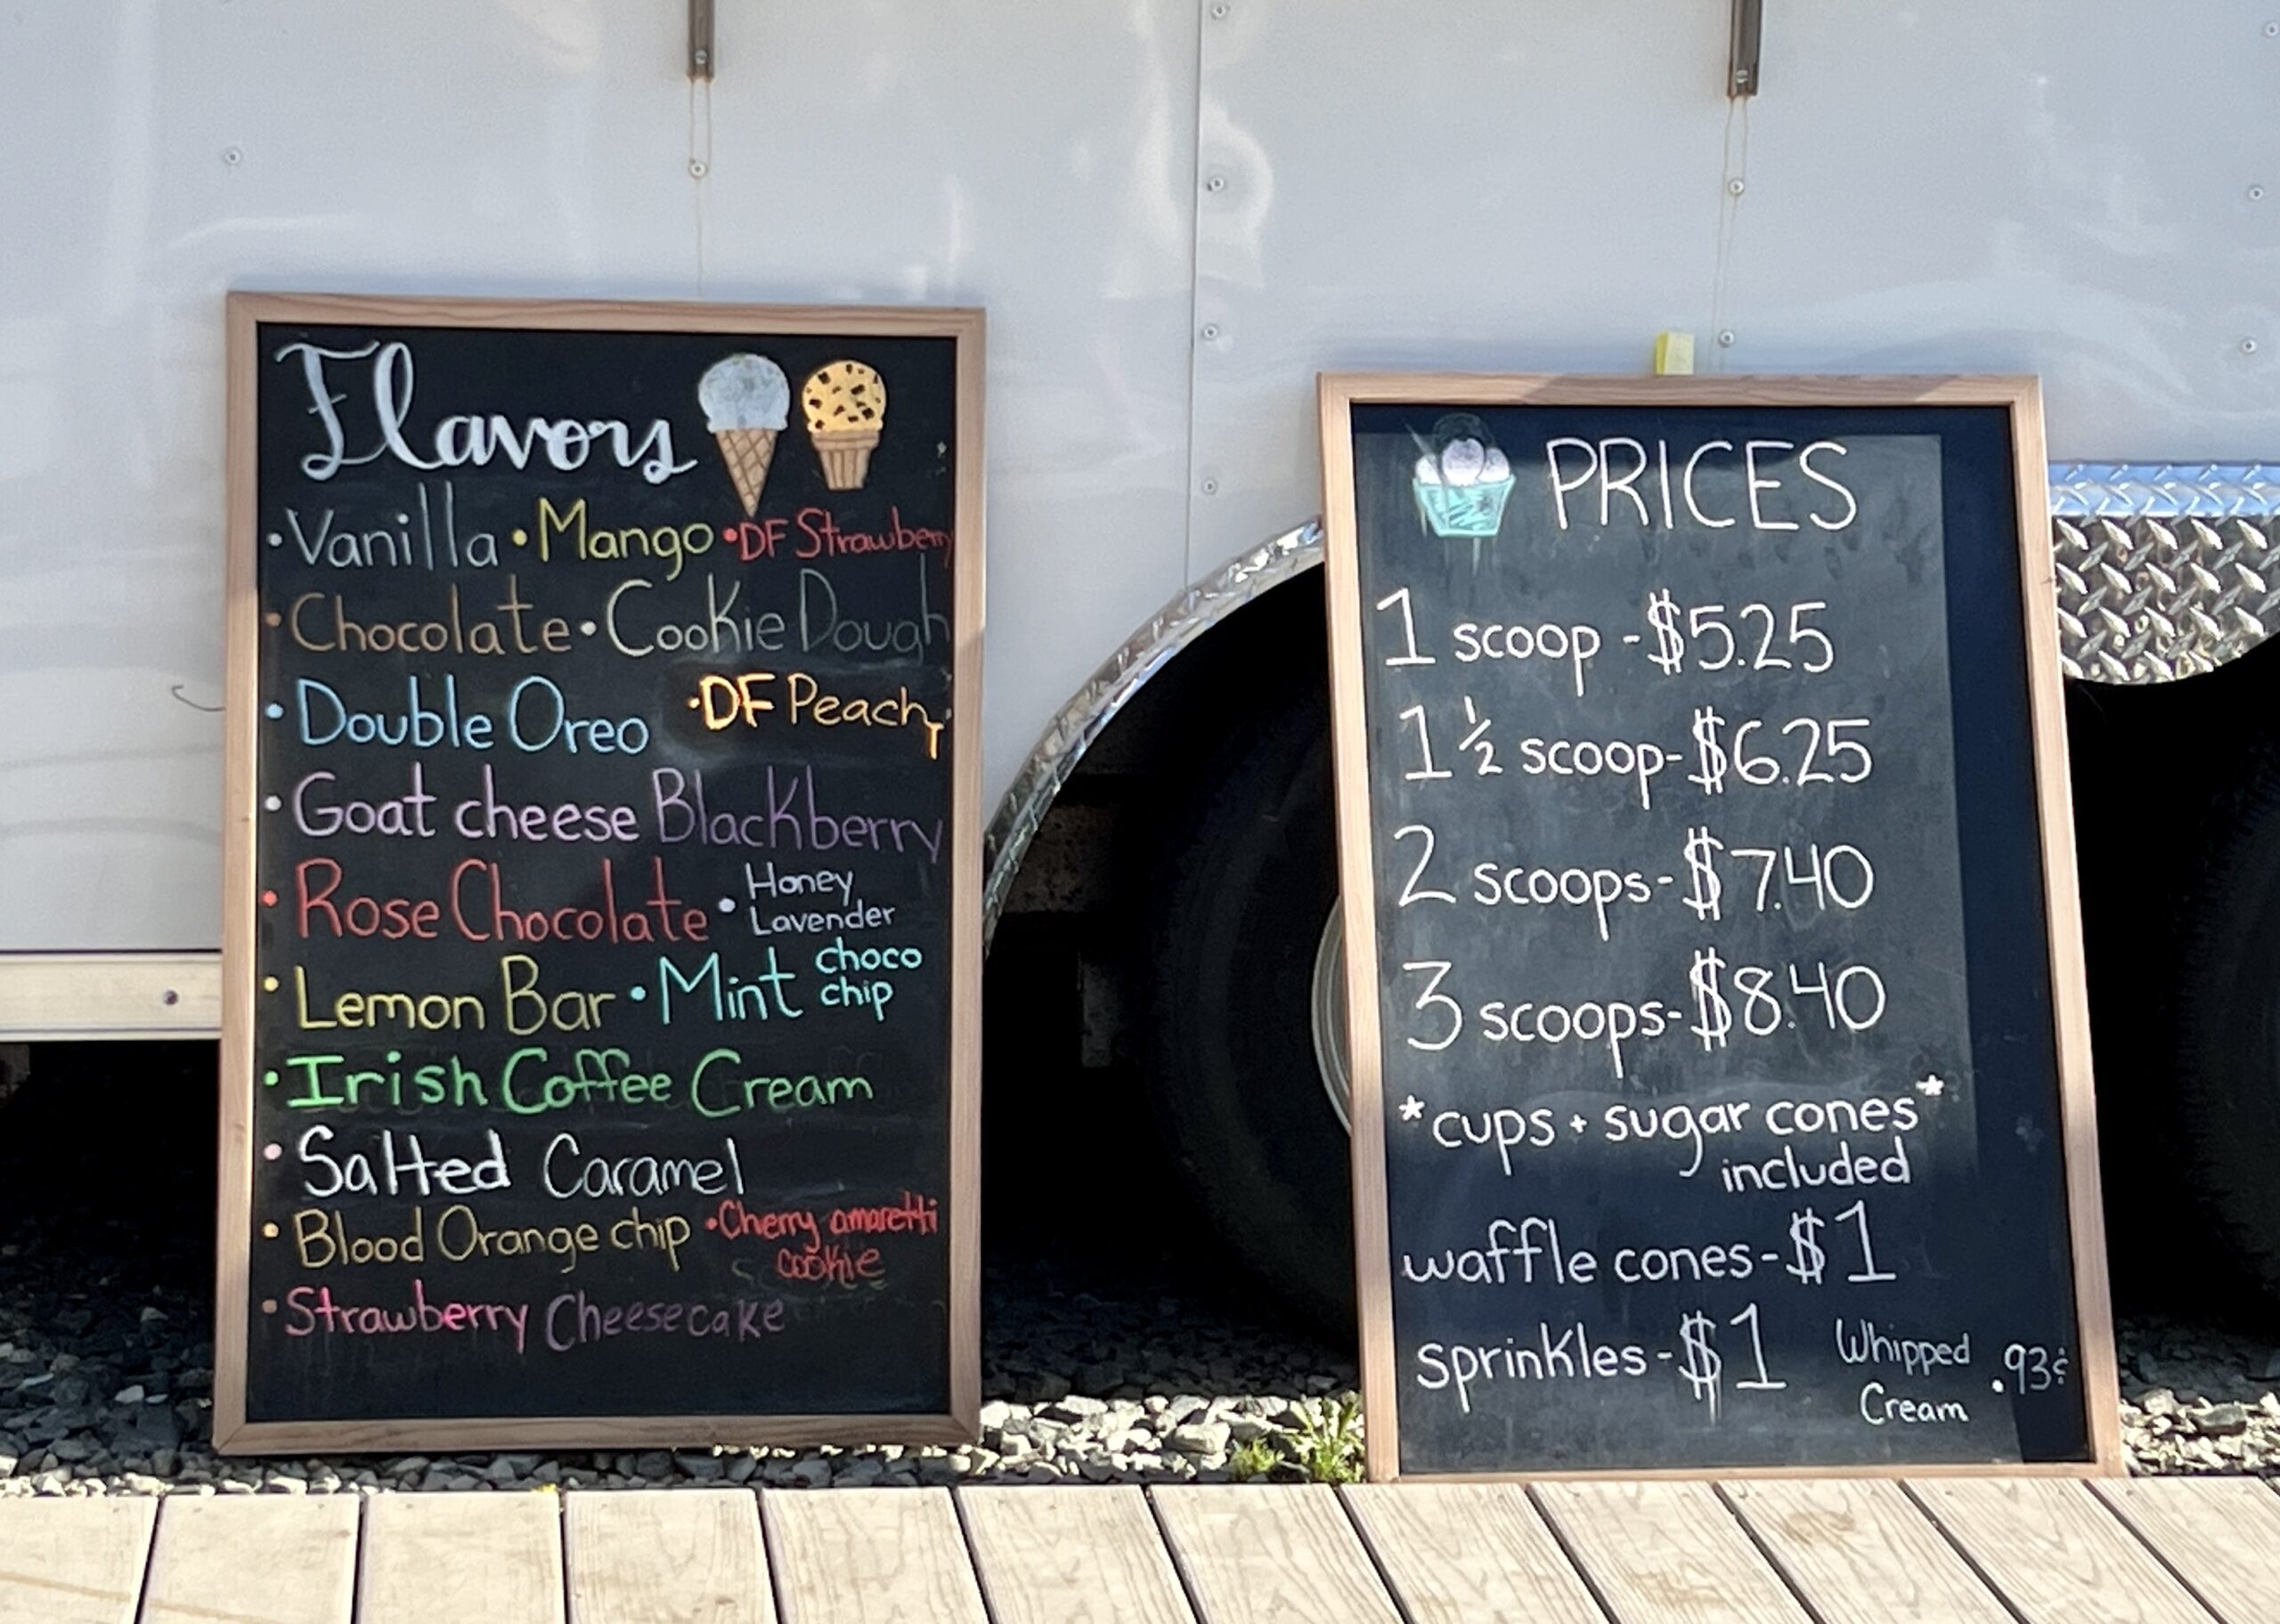 Flavors
• Vanilla • Mango • DF Strawberry
• Chocolate • Cookie Dough
• Double Oreo • DF Peachy
• Goat cheese Blackberry
• Rose Chocolate • Honey Lavender
• Lemon Bar • Mint choco chip
• Irish Coffee Cream
• Salted Caramel
• Blood Orange chip • Cherry amaretti cookie
• Strawberry Cheesecake
PRICES
1 scoop - $5.25
1 ½ scoop - $6.25
2 scoops - $7.40
3 scoops - $8.40
*cups + sugar cones*
included
waffle cones - $1
sprinkles - $1 Whipped Cream .93¢